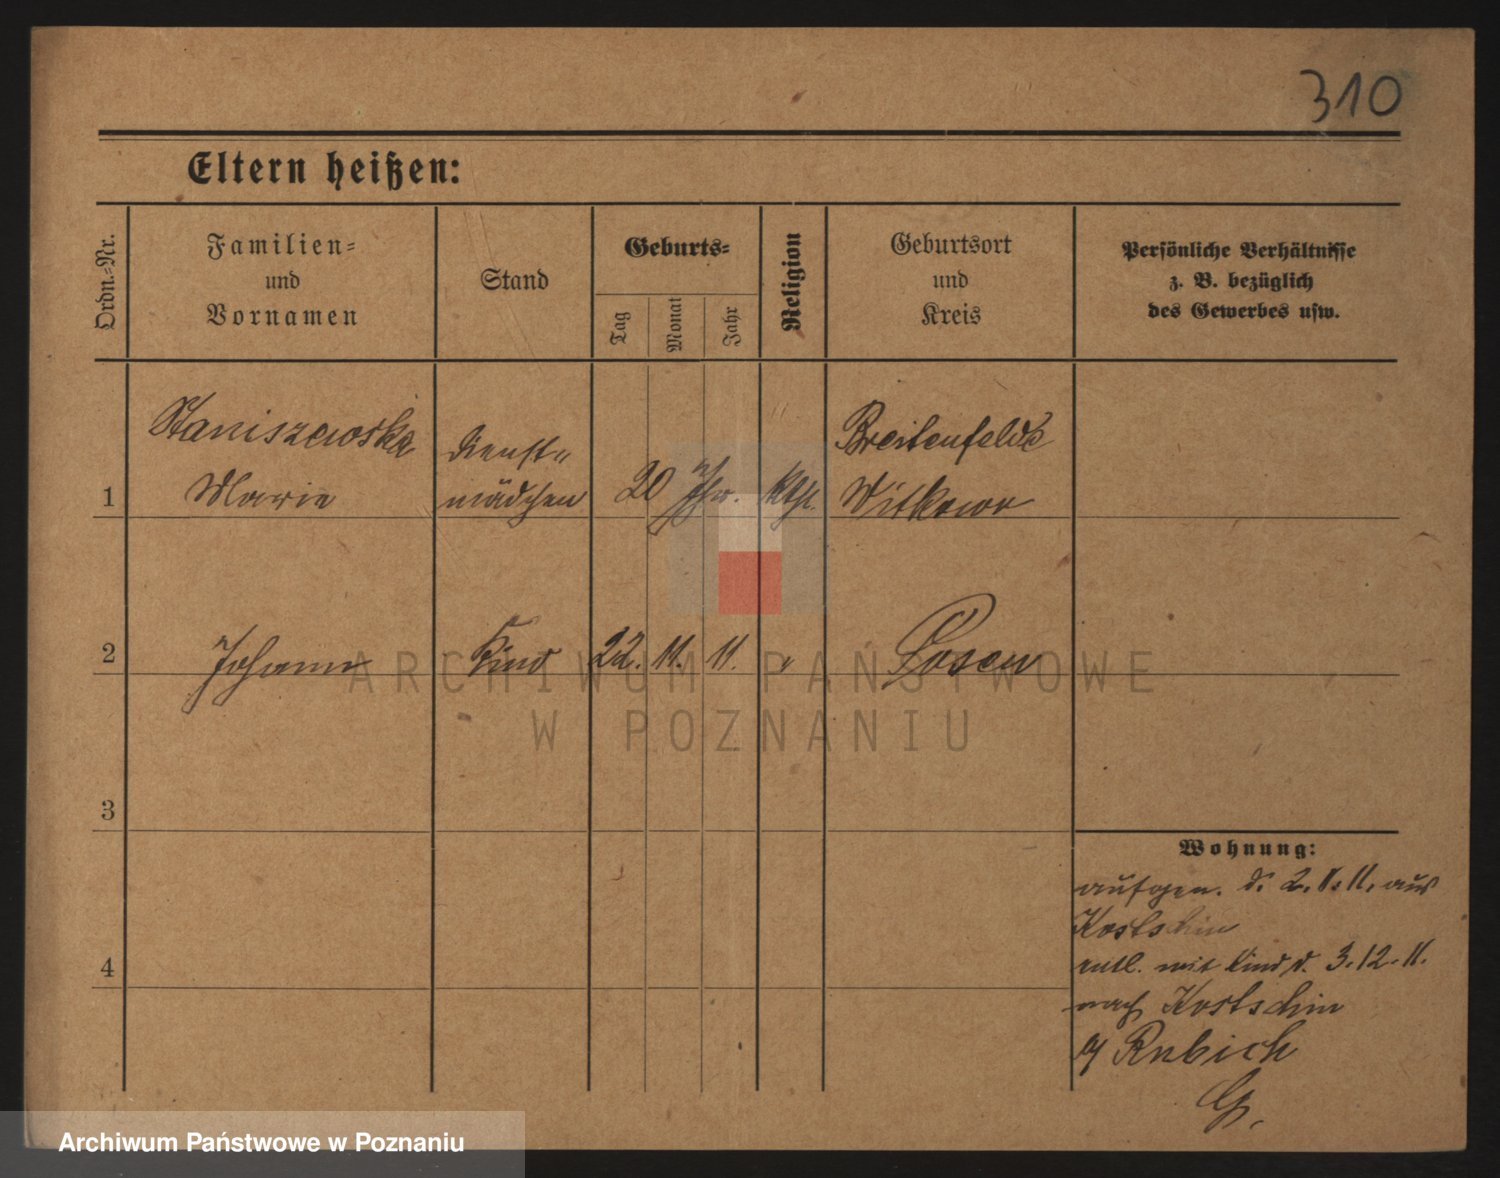 310
Eltern heißen:
Ordn.-Nr.
Familien-
und
Vornamen
Stand
Geburts-
Tag
Monat
Jahr
Religion
Geburtsort
und
Kreis
Persönliche Verhältnisse
z. B. bezüglich
des Gewerbes usw.
1
Staniszewska
Marie
Dienst-
mädchen
20 Jhr.
kth.
Breitenfelde
Witkowo
2
Johann
Kind
22. 11. 11.
"
Posen
ARCHIWUM PAŃSTWOWE
W POZNANIU
3
4
Wohnung:
aufgen. d. 2. 11. aus
Kostschin
entl. mit Kind d. 3.12.11.
nach Kostschin
Rubich
G.
Archiwum Państwowe w Poznaniu